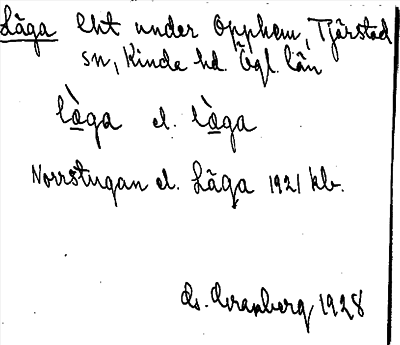 Låga lht under Opphem, Tjärstad
sn, Kinda hd. Ögl. län
lå̀ga el. lå̀ga
Norrstugan el. Låga 1921 kb.
1928